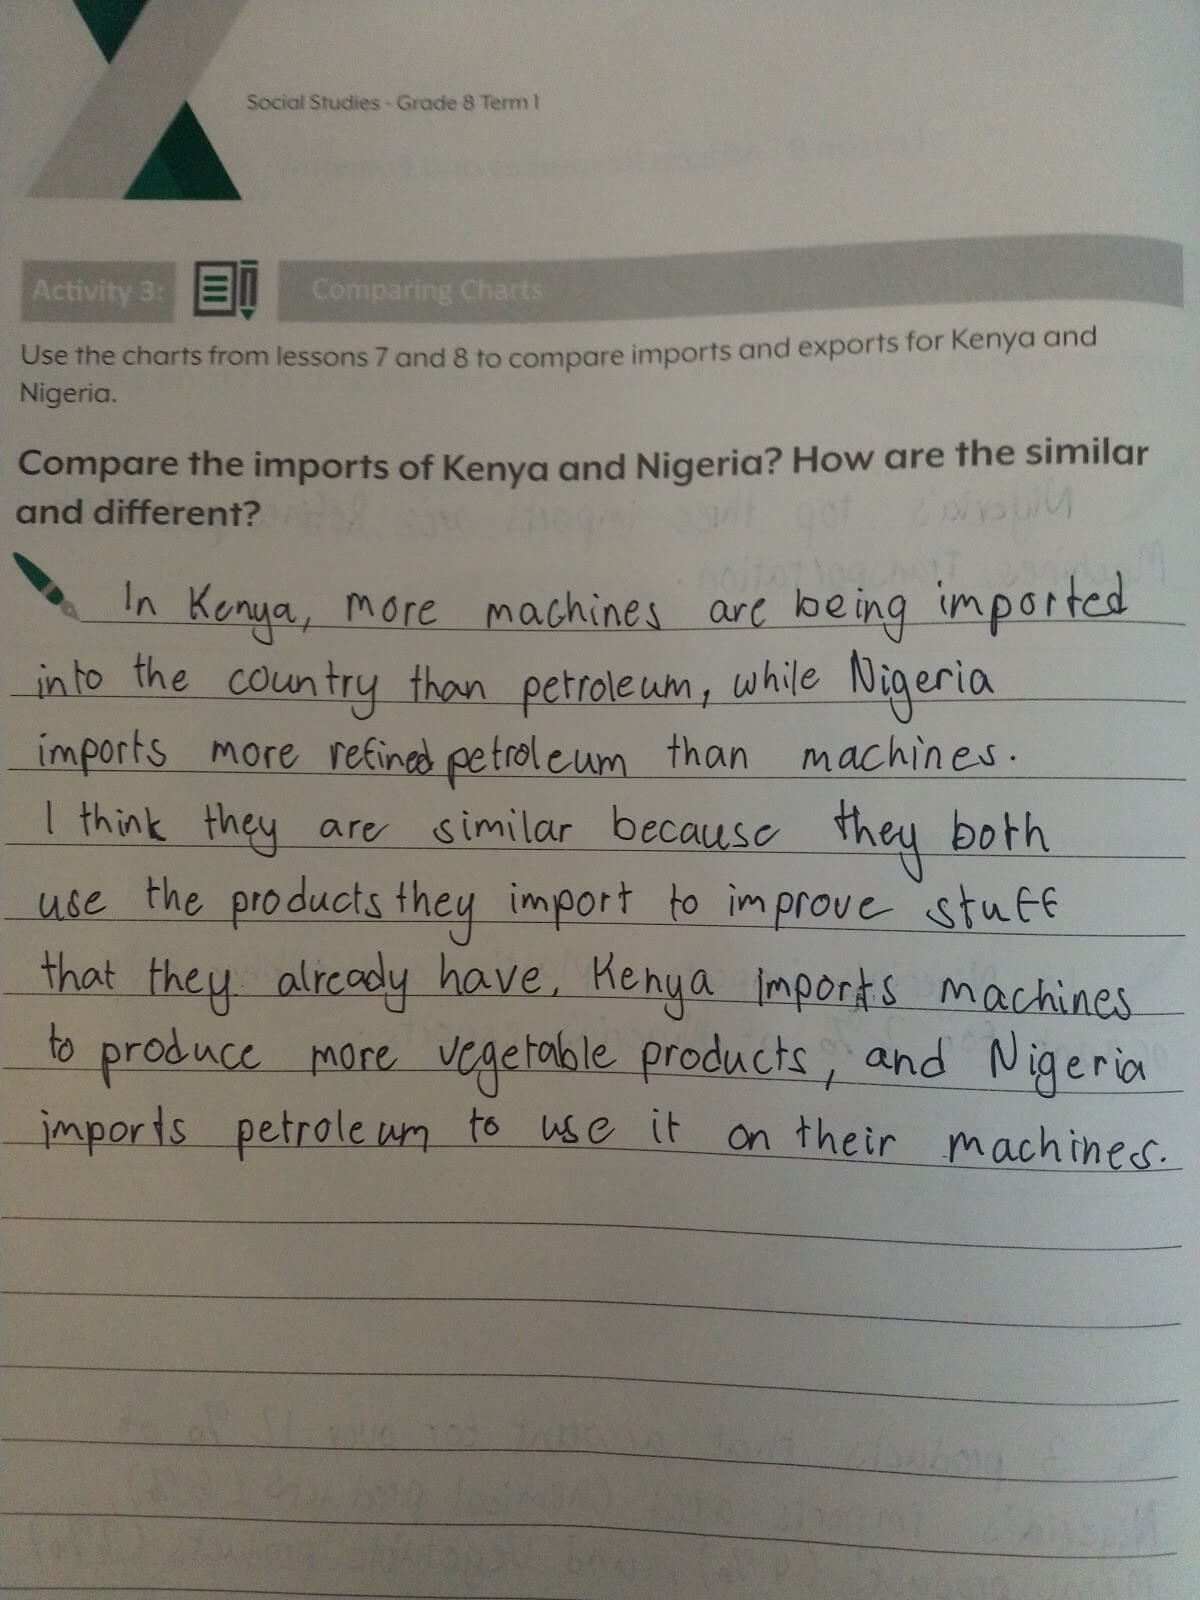 Social Studies - Grade 8 Term 1
Activity 3:
Comparing Charts
Use the charts from lessons 7 and 8 to compare imports and exports for Kenya and
Nigeria.
Compare the imports of Kenya and Nigeria? How are the similar
and different?
In Kenya, more machines are being imported
into the country than petroleum, while Nigeria
imports more refined petroleum than machines.
I think they are similar because they both
use the products they import to improve stuff
that they already have, Kenya imports machines
to produce more vegetable products, and Nigeria
imports petroleum to use it on their machines.